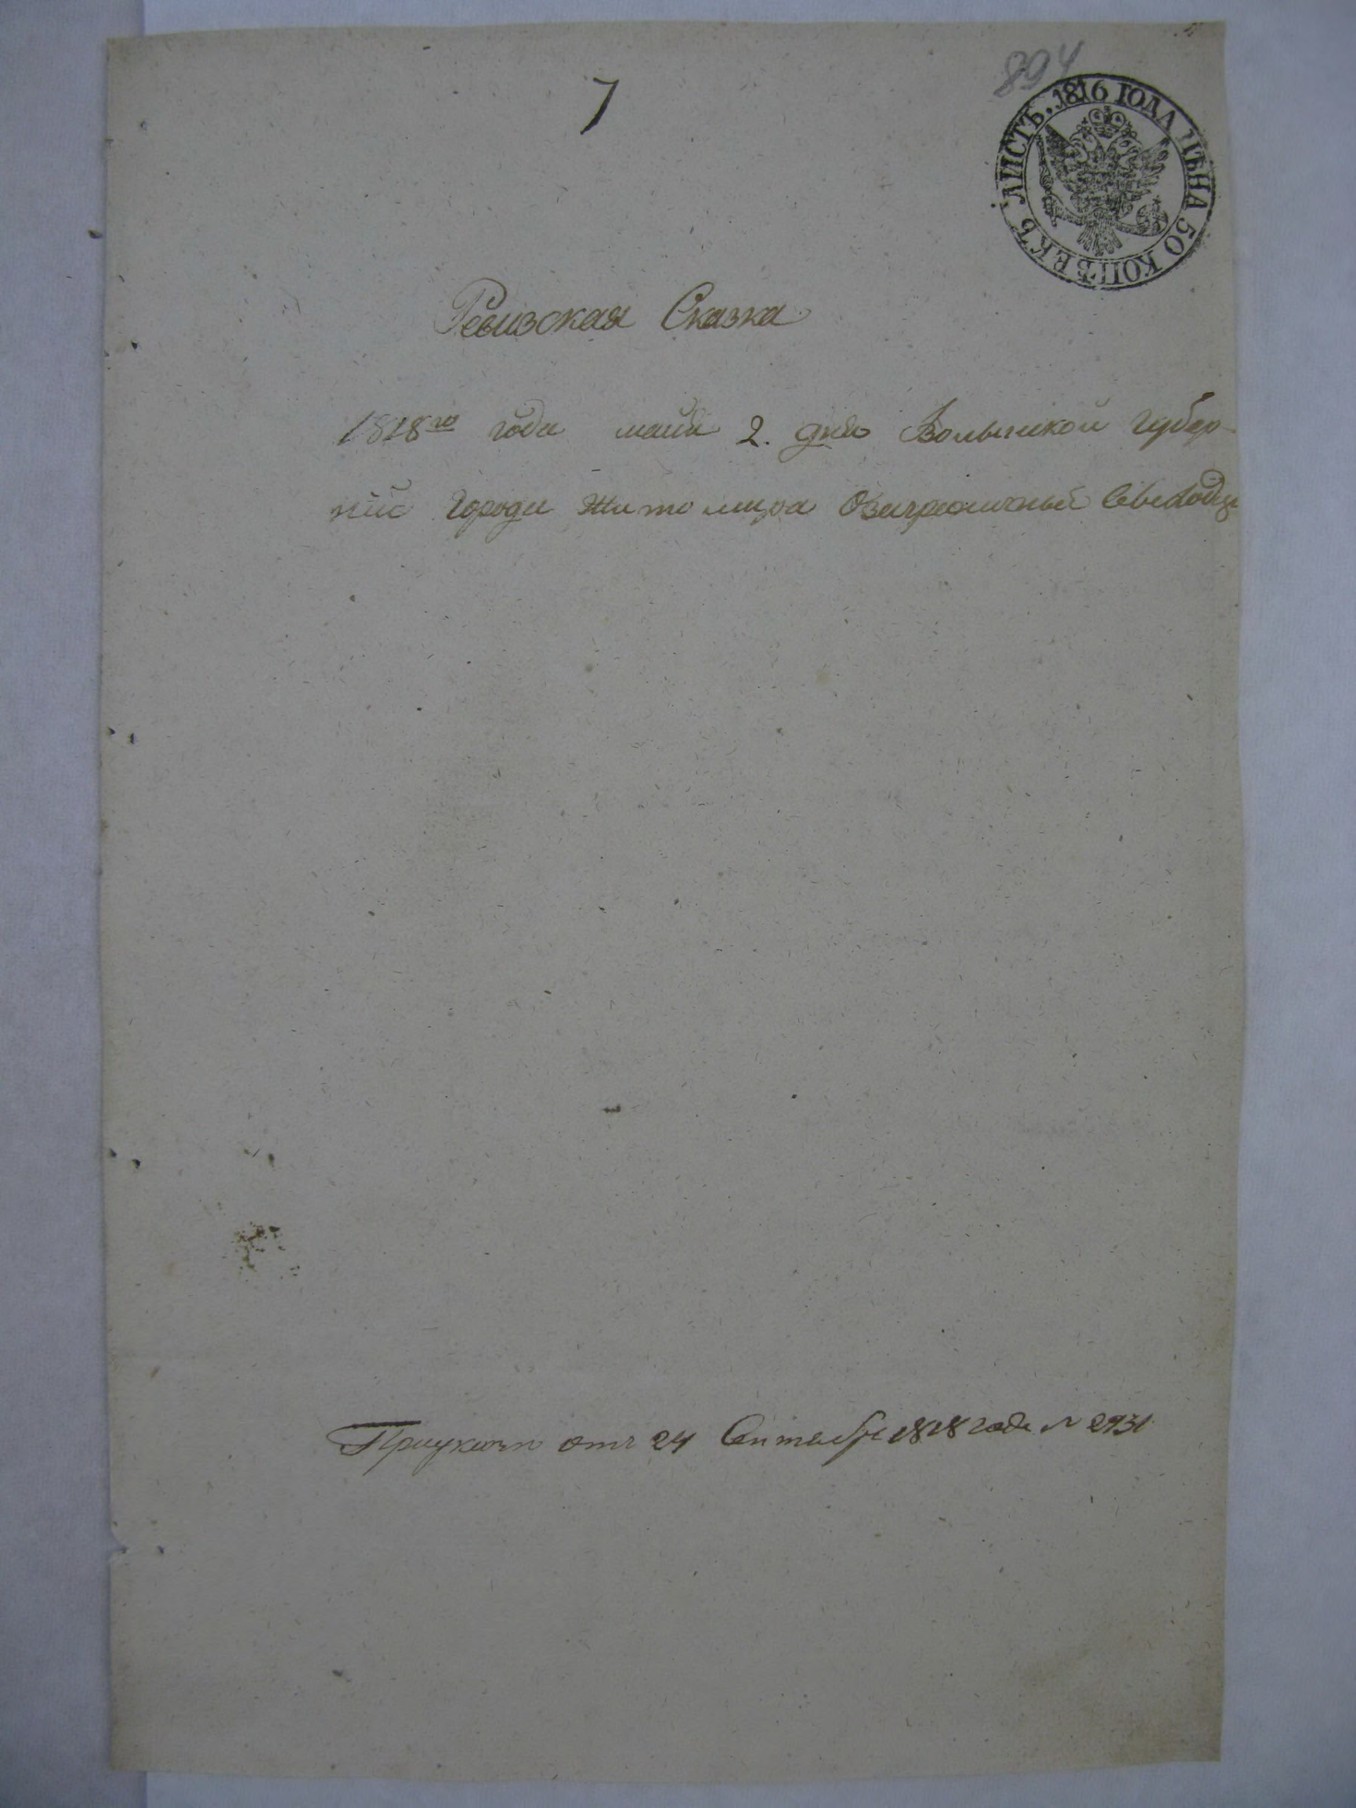 7
894
ЛИСТЪ. 1816 ГОДА ЦѢНА 50 КОПѢЕКЪ
Ревизская Сказка
1818го года маия 2. дня Волынской губер-
нии города Житомира О заграничныхъ
Приуказѣ отъ 24 Сентября 1818 года N 2931